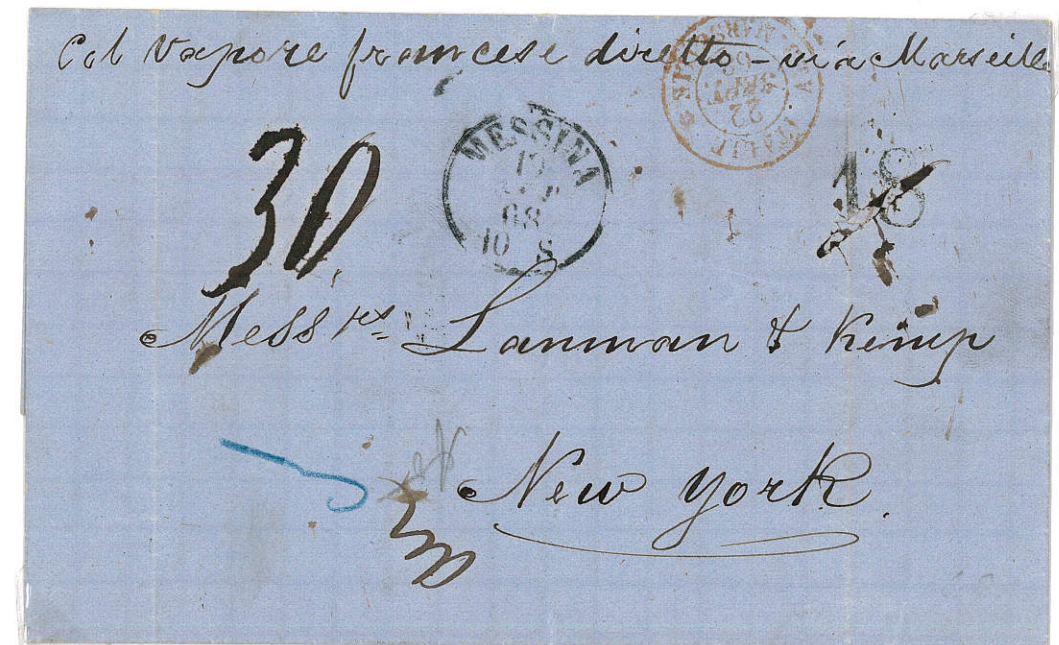 Col Vapore francese diretto - via Marseille
ITALIE
22
SEPT.
68
MESSINA
68
10 S
30
18
Mess rs Lanman & Kemp
New York